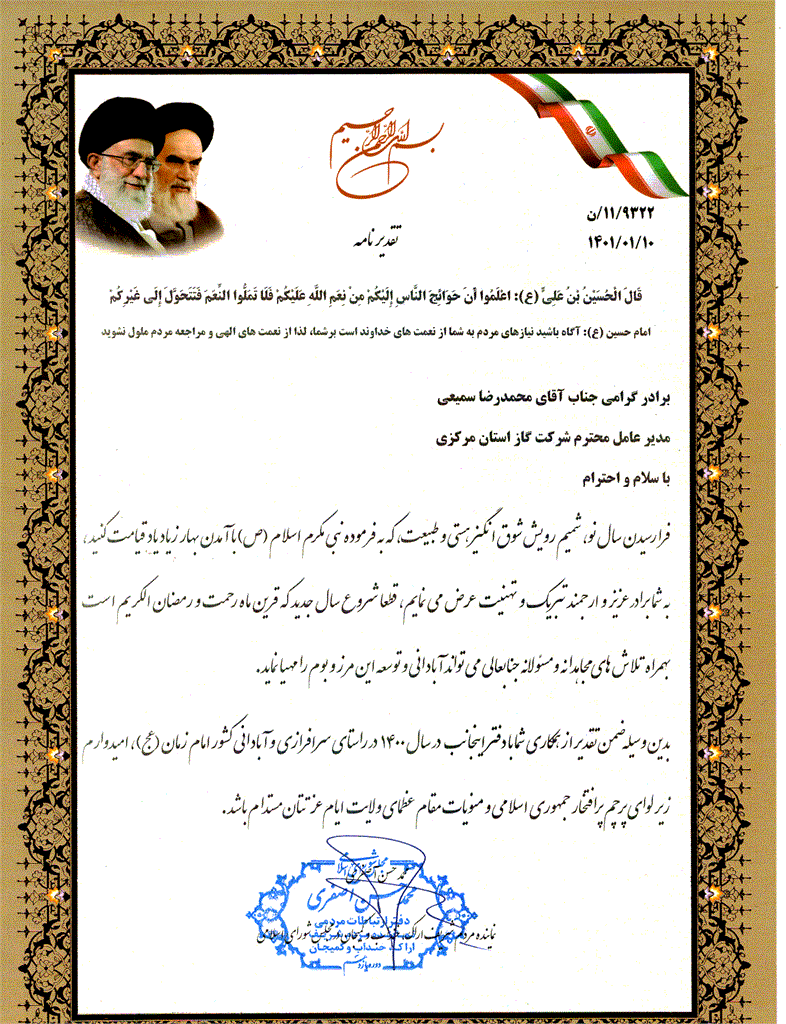 بسم الله الرحمن الرحیم
۱۱/۹۳۲۲/ن
۱۴۰۱/۰۱/۱۰
تقدیر نامه
قَالَ الْحُسَیْنُ بْنُ عَلِیٍّ (ع): اعْلَمُوا أَنَّ حَوَائِجَ النَّاسِ إِلَیْکُمْ مِنْ نِعَمِ اللَّهِ عَلَیْکُمْ فَلَا تَمَلُّوا النِّعَمَ فَتَتَحَوَّلَ إِلَی غَیْرِکُمْ
امام حسین (ع): آگاه باشید نیازهای مردم به شما از نعمت های خداوند است برشما، لذا از نعمت های الهی و مراجعه مردم ملول نشوید
برادر گرامی جناب آقای محمدرضا سمیعی
مدیر عامل محترم شرکت گاز استان مرکزی
با سلام و احترام
فرارسیدن سال نو، شمیم رویش شوق انگیز هستی و طبیعت، که به فرموده نبی مکرم اسلام (ص) با آمدن بهار زیاد یاد قیامت کنید،
به شما برادر عزیز و ارجمند تبریک و تهنیت عرض می نمایم، قطعا شروع سال جدید که قرین ماه رحمت و رمضان الکریم است
بهمراه تلاش های مجاهدانه و مسئولانه جنابعالی می تواند آبادانی و توسعه این مرز و بوم را مهیا نماید.
بدین وسیله ضمن تقدیر از همکاری شما با دفتر اینجانب در سال ۱۴۰۰ در راستای سرافرازی و آبادانی کشور امام زمان (عج)، امیدوارم
زیر لوای پرچم پرافتخار جمهوری اسلامی و منویات مقام عظمای ولایت ایام عزتتان مستدام باشد.
محمد حسن آصفری
محمد حسن آصفری
دفتر ارتباطات مردمی
نماینده مردم شریف اراک، خنداب و کمیجان در مجلس شورای اسلامی
اراک، خنداب و کمیجان
دوره یازدهم